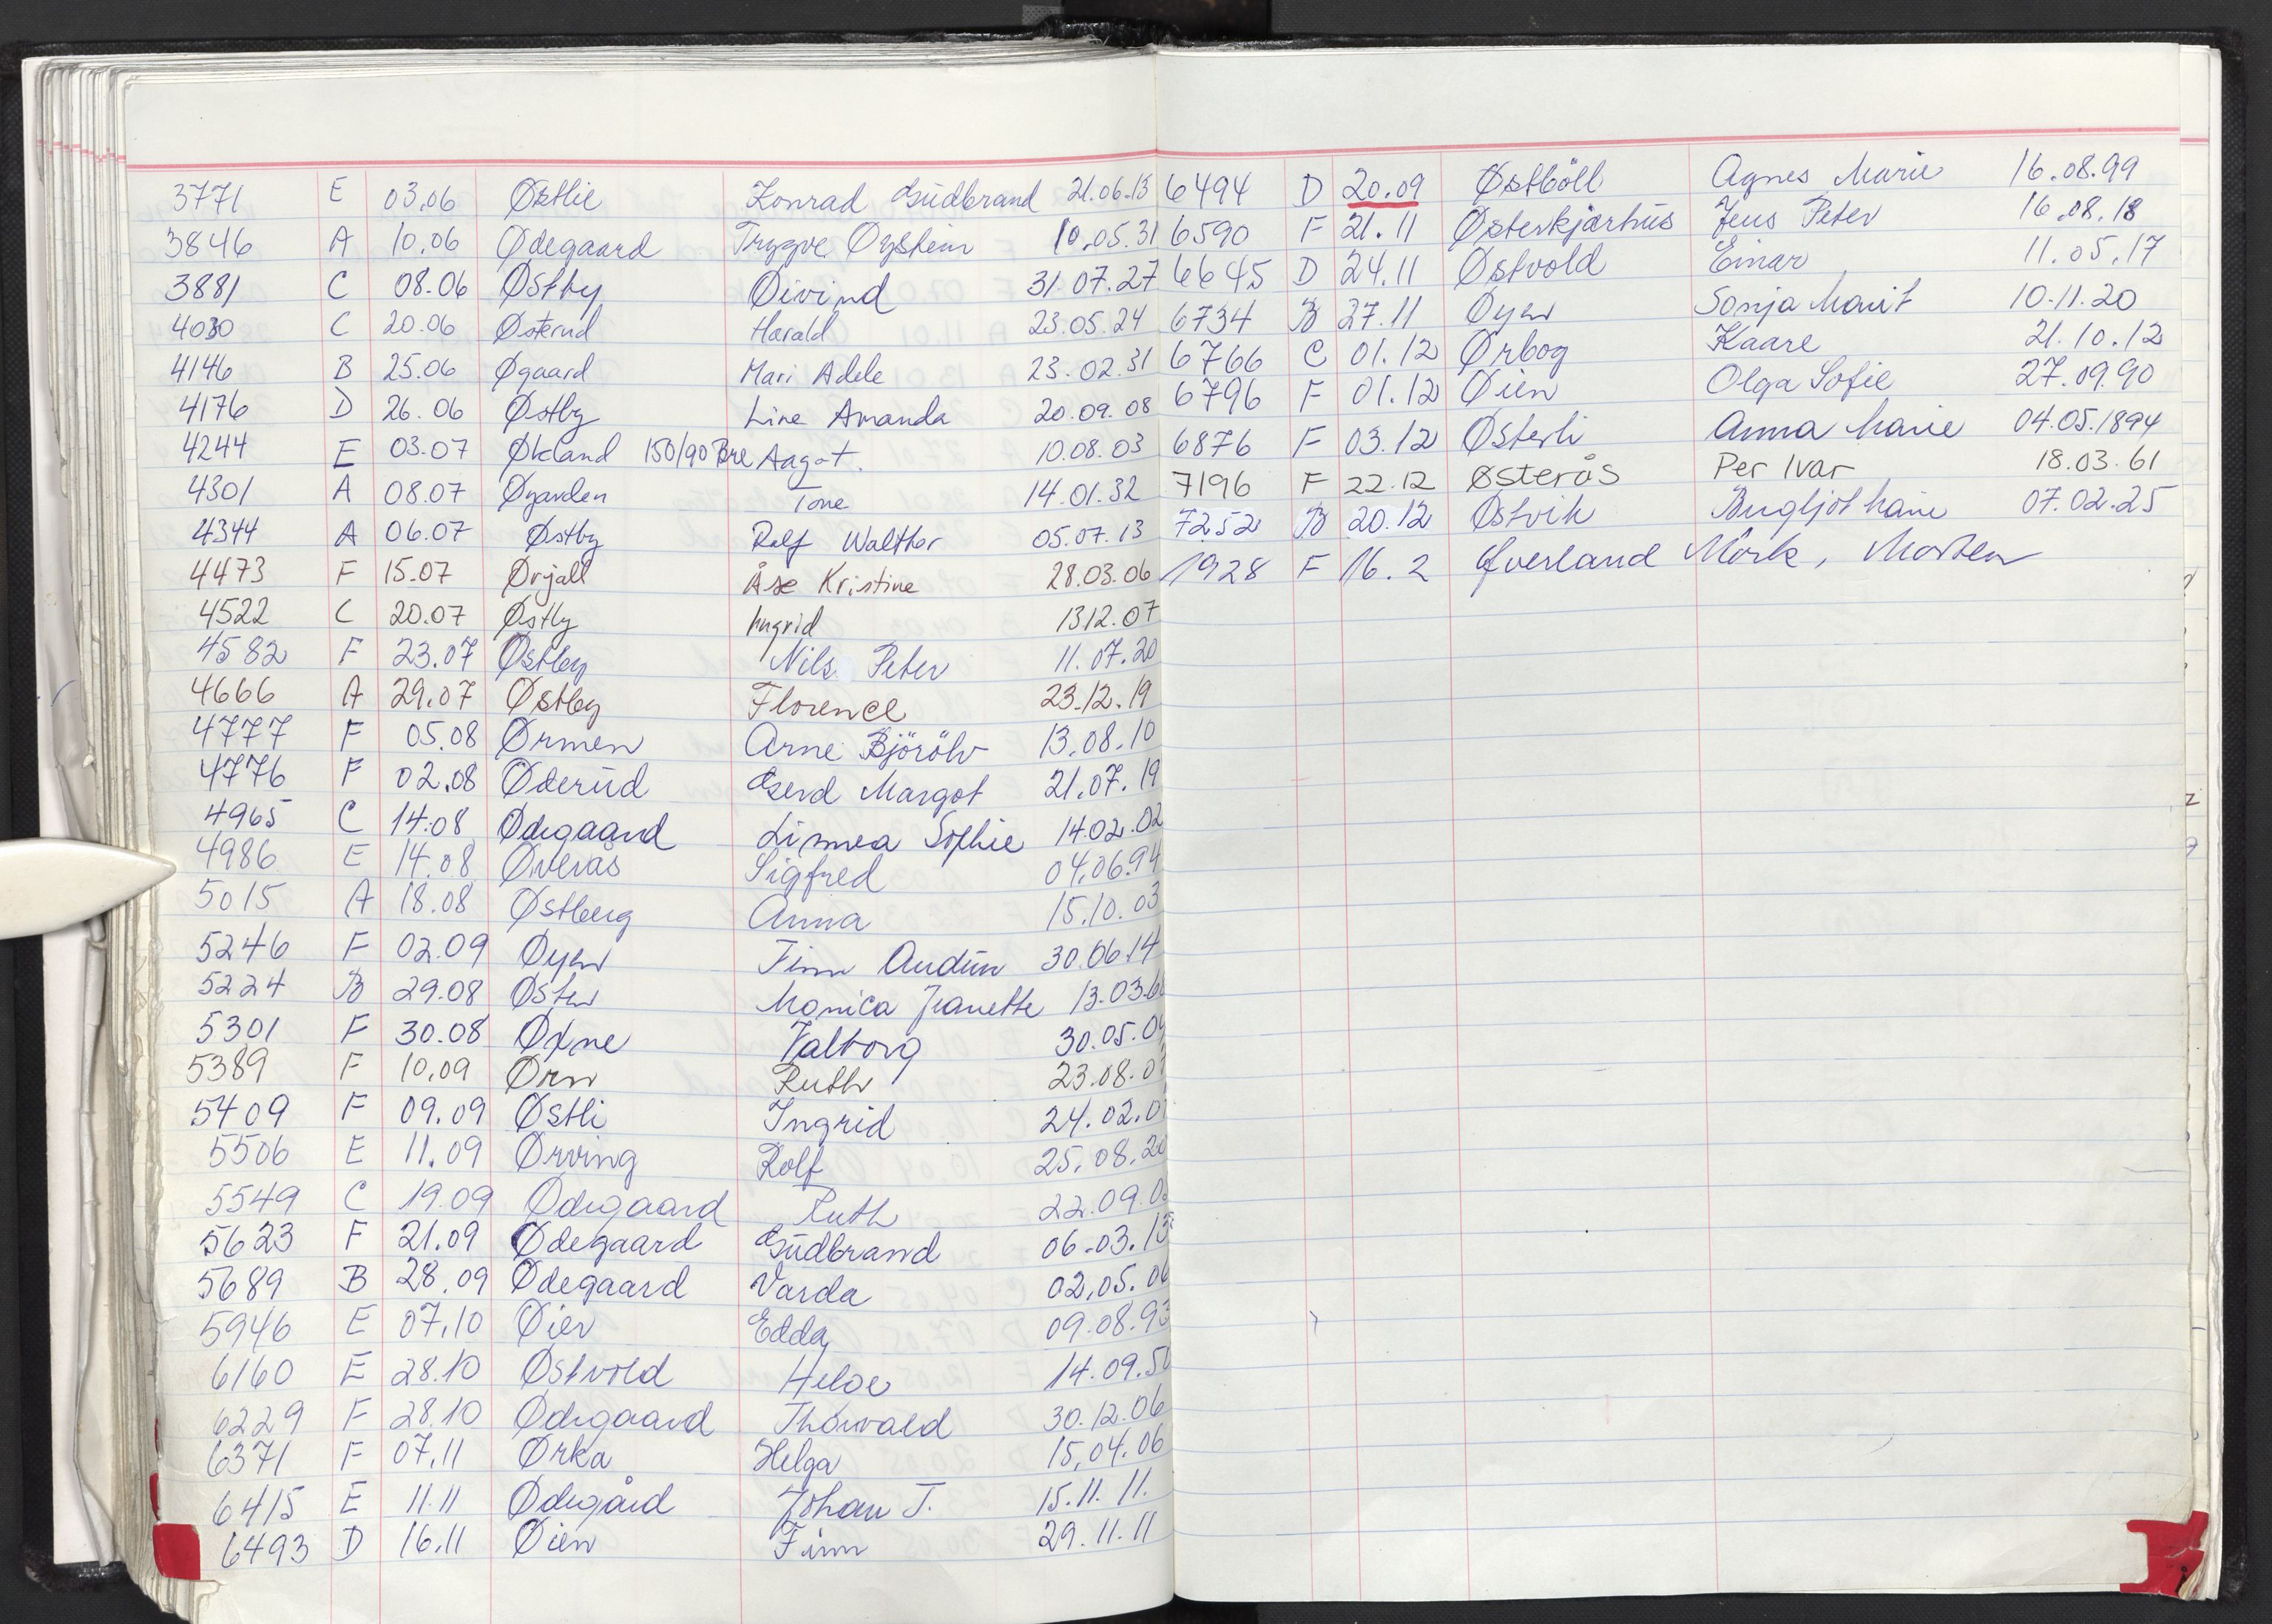 3771 E 03.06 Østlie Konrad Gudbrand 21.06.13
3846 A 10.06 Ødegaard Trygve Øystein 10.05.31
3881 C 08.06 Østby Øivind 31.07.27
4030 C 20.06 Østerud Harald 23.05.24
4146 B 25.06 Øgaard Mari Adele 23.02.31
4176 D 26.06 Østby Line Amanda 20.09.08
4244 E 03.07 Økland 150/90 Bre Aagot. 10.08.03
4301 A 08.07 Øygarden Tone 14.01.32
4344 A 06.07 Østby Rolf Walther 05.07.13
4473 F 15.07 Ørjall Åse Kristine 28.03.06
4522 C 20.07 Østby Ingrid 13.12.07
4582 F 23.07 Østby Nils Peter 11.07.20
4666 A 29.07 Østby Florence 23.12.19
4777 F 05.08 Ørmen Arne 13.08.10
4776 F 02.08 Øderud Gerd Margot 21.07.19
4965 C 14.08 Ødegaard Linnea Sophie 14.02.02
4986 E 14.08 Øverås Sigfred 04.06.94
5015 A 18.08 Østberg Anna 15.10.03
5246 F 02.09 Øyen Finn Audun 30.06.14
5224 B 29.08 Øster Monica Jeanette 13.03.6
5301 F 30.08 Øxne Valborg 30.05.0
5389 F 10.09 Ørn Ruth 23.08.0
5409 F 09.09 Østli Ingrid 24.02.0
5506 E 11.09 Ørving Rolf 25.08.20
5549 C 19.09 Ødegaard Ruth 22.09.0
5623 F 21.09 Ødegaard Gudbrand 06.03.13
5689 B 28.09 Ødegaard Varda 02.05.06
5946 E 07.10 Øien Edda 09.08.93
6160 E 28.10 Østvold Helge 14.09.50
6229 F 28.10 Ødegaard Thorvald 30.12.06
6371 F 07.11 Ørka Helga 15.04.06
6415 E 11.11 Ødegård Johan T. 15.11.11.
6493 D 16.11 Øien Finn 29.11.11
6494 D 20.09 Østböll Agnes Marie 16.08.99
6590 F 21.11 Østerkjærhus Jens Peter 16.08.18
6645 D 24.11 Østvold Einar 11.05.17
6734 B 27.11 Øyen Sonja Marit 10.11.20
6766 C 01.12 Ørbog Kaare 21.10.12
6796 F 01.12 Øien Olga Sofie 27.09.90
6876 F 03.12 Østerli Anna Marie 04.05.1894
7196 F 22.12 Østerås Per Ivar 18.03.61
7252 B 20.12 Østvik Bergljot Marie 07.02.25
1928 F 16.2 Øverland Mörk, Morten